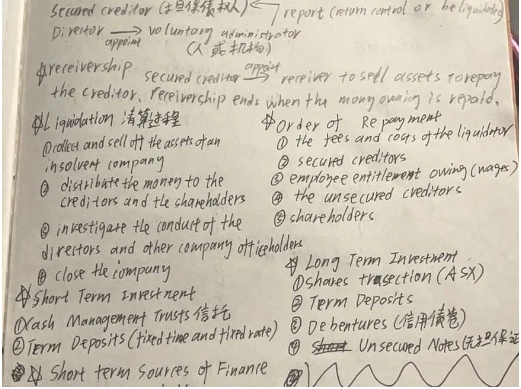 secured creditor (担保债权人) ← report (return control or be liquidating
Director → appoint voluntary administrator
(人或机构)
☆receivership secured creditor → appoint receiver to sell assets to repay
the creditor, receivership ends when the mony owning is repaid.
☆Liquidation 清算过程
①collect and sell off the assets of an
insolvent company
② distribute the money to the
creditors and the shareholders
③ investigate the conduct of the
directors and other company officeholders
④ close the company
☆Short Term Investnent
①Cash Management Trusts 信托
②Term Deposits (fixed time and fixed rate)
☆ Short term Sources of Finance
☆Order of Repayment
① the fees and costs of the liquidator
② secured creditors
③ employee entitlement owing (wages)
④ the unsecured creditors
⑤ shareholders
☆ Long Term Investment
①shares trasection (ASX)
② Term Deposits
③ Debentures (信用债卷)
④ Unsecured Notes (无担保证